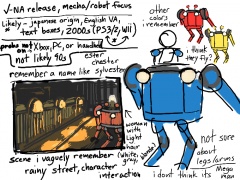 V-NA release, mecha/robot focus
Likely - japanese origin, English VA,
* text boxes, 2000s (PS3/2, WII)
probs not on Xbox, PC, or handheld
not likely 90s
ester
chester
remember a name like sylvester
scene i vaguely remember
rainy street, character
interaction
woman with
Light
hair
(white,
gray,
blonde)
other
colors i
remember
i think
they fly?
not sure
about
legs/arms
i dont think its Mega
man